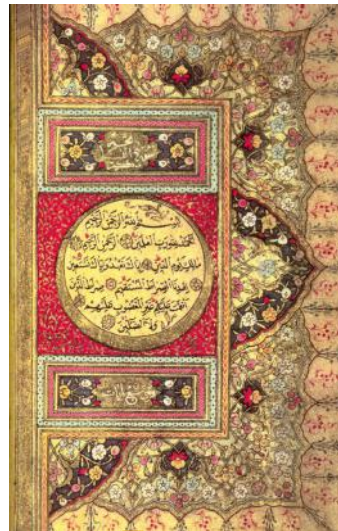 بسم الله الرحمن الرحيم
الحمد لله رب العالمين الرحمن الرحيم
مالك يوم الدين اياك نعبد واياك نستعين
اهدنا الصراط المستقيم صراط الذين
انعمت عليهم غير المغضوب عليهم
ولا الضالين
سبع آيات